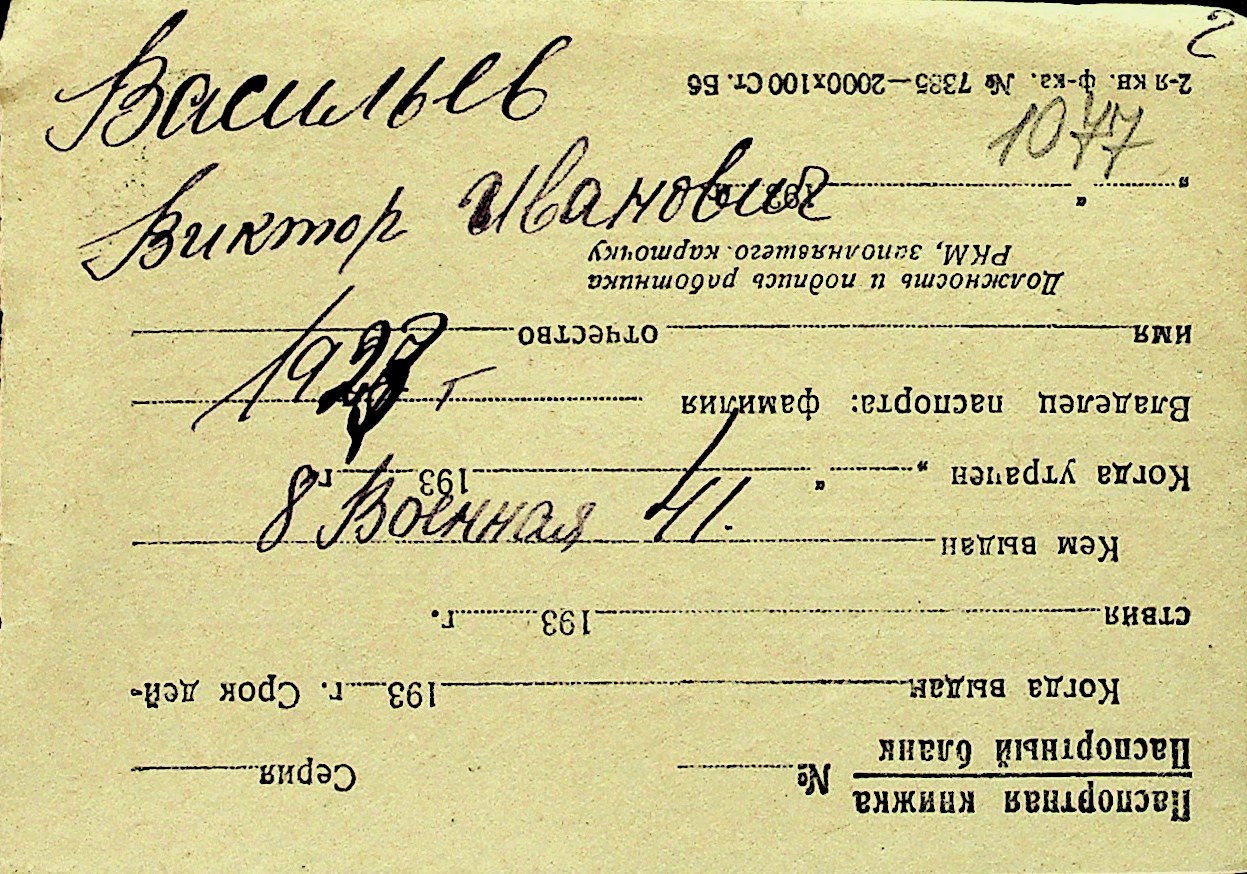 2
Васильев
1077
Виктор Иванович
г
8 Военная 41.
Паспортная книжка
Паспортный бланк
№ Серия
Когда выдан 193 г. Срок дей-
ствия 193 г.
Кем выдан
Когда утрачен „ “ 193 г.
Владелец паспорта: фамилия
имя отчество
Должность и подпись работника
РКМ, заполнявшего карточку
„ “ 193 г.
2-я кв. ф-ка. № 7385—2000х100 Ст. Бб